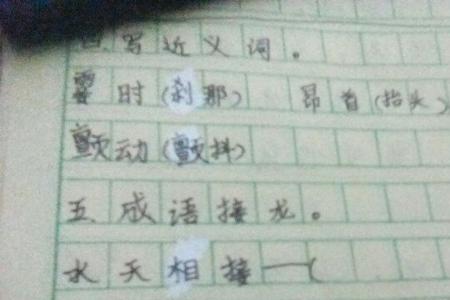 四、写近义词。
霎时(刹那) 昂首(抬头)
颤动(颤抖)
五、成语接龙。
水天相接—(